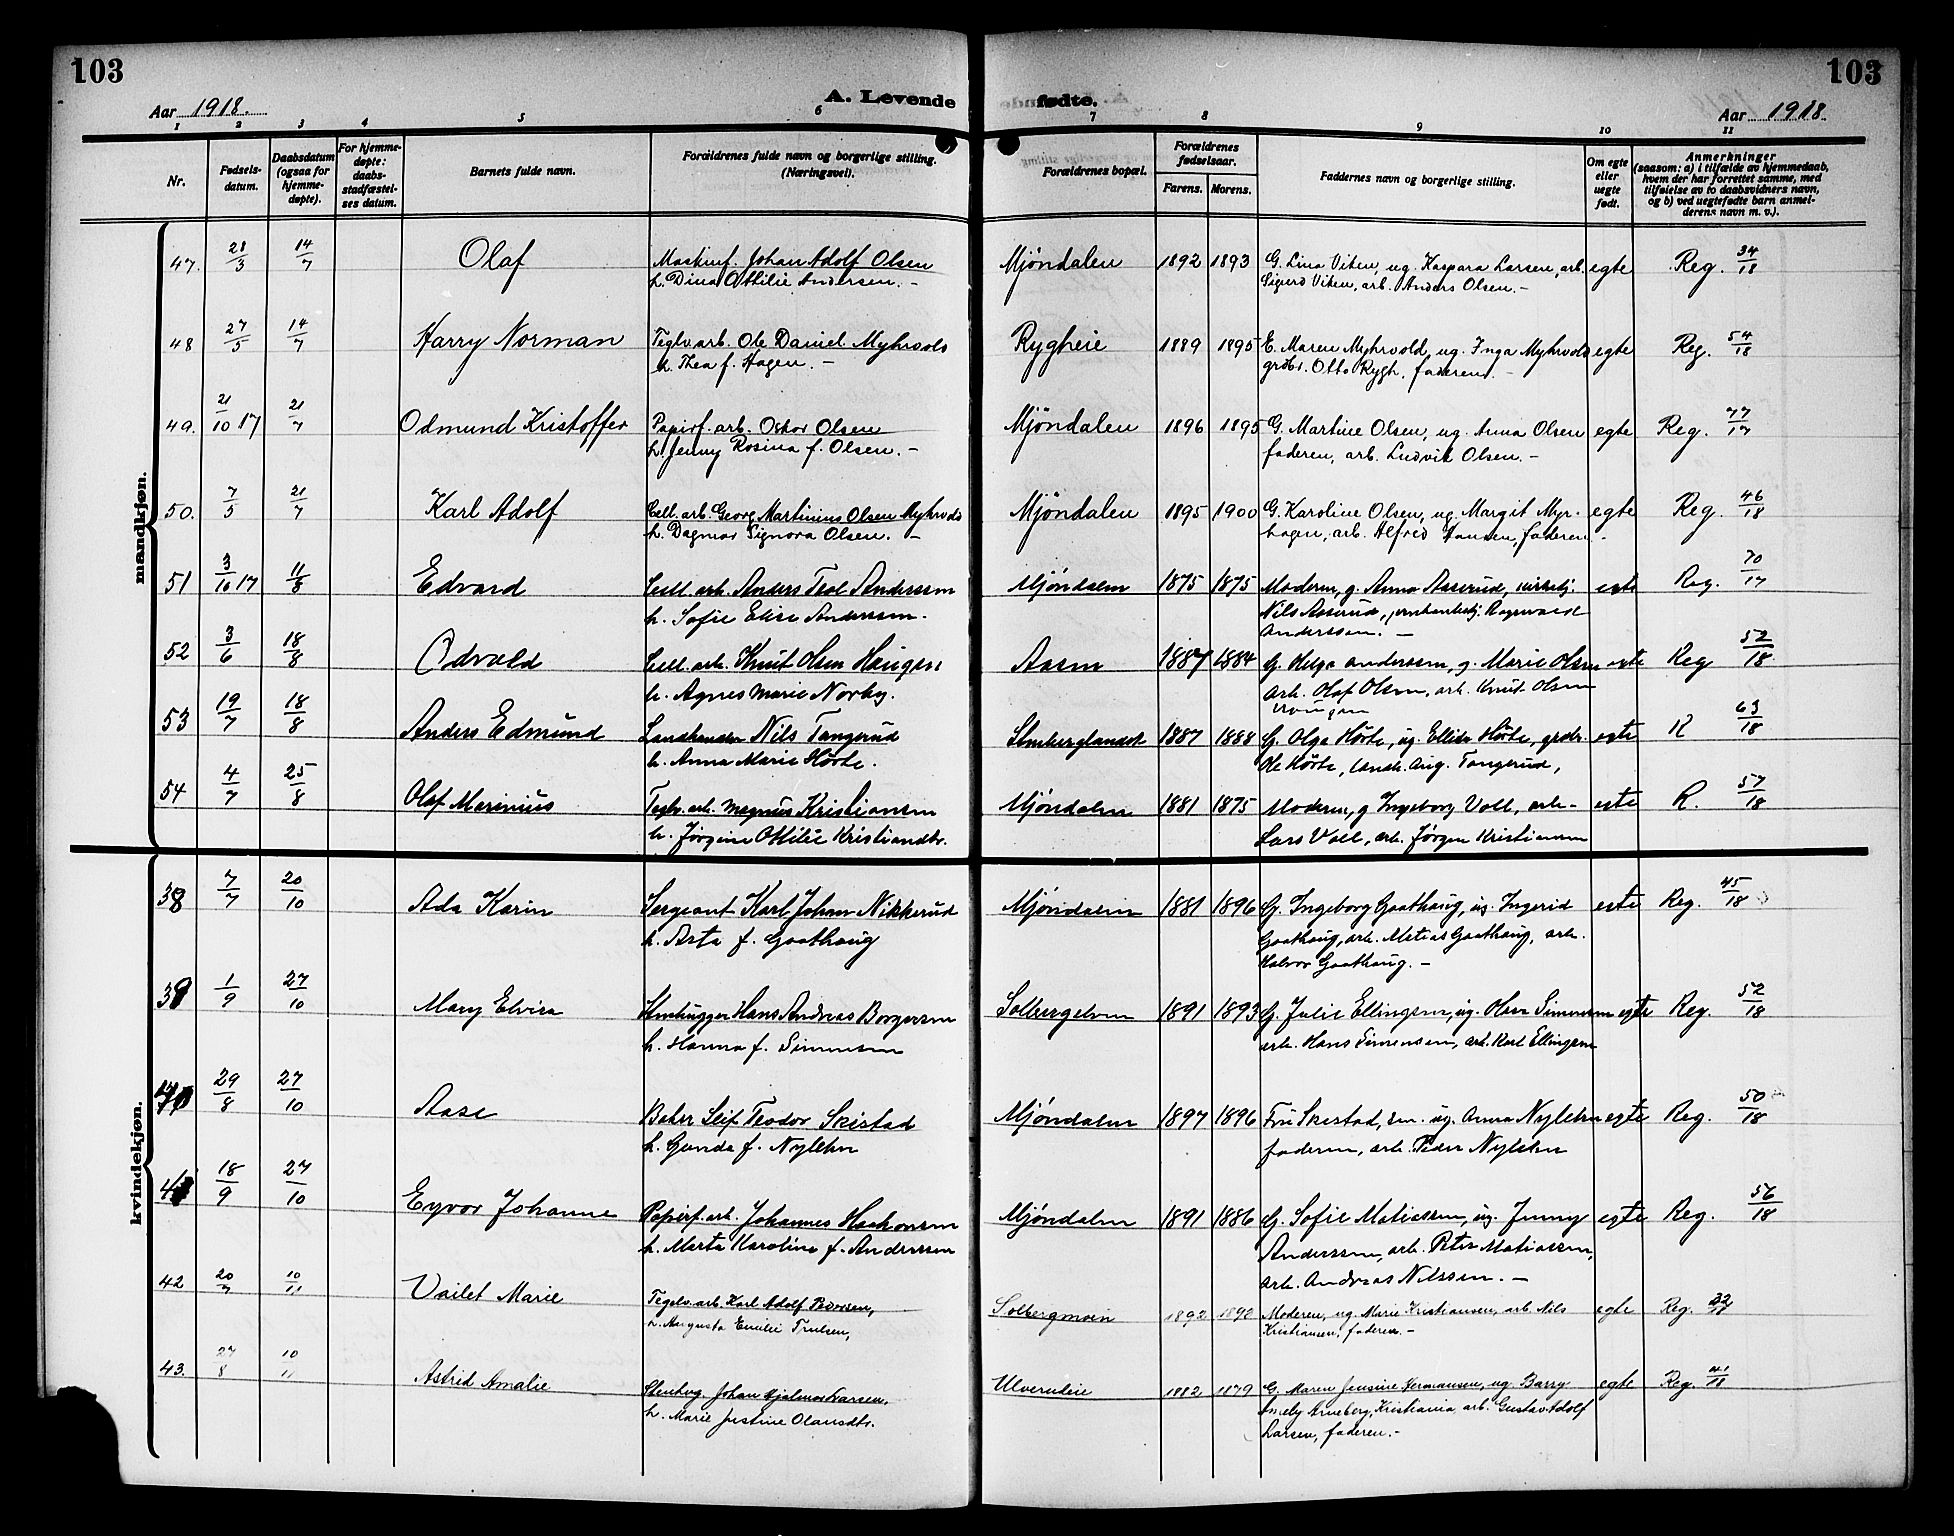 103
103
A. Levende
fødte.
Aar 1918.
Aar 1918.
1 2 3 4 5 6 7 8 9 10 11
Nr.
Fødsels-
datum.
Daabsdatum
(ogsaa for
hjemme-
døpte).
For hjemme-
døpte:
daabs-
stadfæstel-
ses datum.
Barnets fulde navn.
Forældrenes fulde navn og borgerlige stilling.
(Næringsvei).
Forældrenes bopæl.
Forældrenes
fødselsaar.
Farens. Morens.
Faddernes navn og borgerlige stilling.
Om egte
eller
uegte
født.
Anmerkninger
(saasom: a) i tilfælde av hjemmedaab,
hvem der har forrettet samme, med
tilføielse av to daabsvidners navn,
og b) ved uegtefødte barn anmel-
derens navn m. v.).
mandkjøn.
47. 28/3 14/7 Olaf Maskinf. Johan Adolf Olsen Mjöndalen 1892 1893 G. Lina Viken, ug. Kaspara Larsen, arb. egte Reg. 34/18
h. Dina Othilie Andersen. - Sigurd Viken, arb. Anders Olsen. -
48 27/5 14/7 Harry Norman Teglv.arb. Ole Daniel Myhrvold Rygheie 1889 1895 E. Maren Myhrvold, ug. Inga Myhrvold egte Reg. 54/18
h. Thea f. Hagen. - grdbr. Otto Rygh, faderen. -
49. 21/10 17 21/7 Odmund Kristoffer Papirf. arb. Oskar Olsen Mjöndalen 1896 1895 G. Martine Olsen, ug. Anna Olsen egte Reg. 77/17
h. Jenny Rosina f. Olsen. - faderen, arb. Ludvik Olsen. -
50. 7/5 21/7 Karl Adolf Cell. arb. Georg Martinius Olsen Myhrvold Mjöndalen 1895 1900 G. Karoline Olsen, ug. Margit Myr- egte Reg. 46/18
h. Dagmar Signora Olsen. - hagen, arb. Alfred Hansen, faderen. -
51 3/10 17 11/8 Edvard Cell. arb. Anders Teol Anderssen Mjöndalen 1875 1875 Moderen, g. Anna Aaserud, egte Reg. 70/17
h. Sofie Elise Anderssen. Nils Aaserud, Ragnvald
Anderssen. -
52 3/6 18/8 Odvald Cell. arb. Knut Olsen Haugen Aasen 1887 1884 G. Helga Anderssen, g. Marie Olsen egte Reg 52/18
h. Agnes Marie Norby. arb. Olaf Olsen, arb. Knut Olsen
Haugen
53 19/7 18/8 Anders Edmund Landhandler Nils Tangerud 1887 1888 G. Olga Hörte, ug. Ellida Hörte, grdbr. egte R 63/18
h. Anna Marie Hörte. Ole Hörte, Aug. Tangerud,
54 4/7 25/8 Olaf Marinius Teglv. arb. Magnus Kristiansen Mjöndalen 1881 1875 Moderen, g Ingeborg Voll, arb- egte R. 57/18
h. Jørgine Othilie Kristiandtr. Lars Voll, arb. Jørgen Kristiansen
kvindekjøn.
38 7/7 20/10 Ada Karin Sergeant Karl Johan Nikkerud Mjöndalen 1881 1896 G. Ingeborg Gaathaug, ug. Ingerid egte Reg. 45/18
h. Asta f. Gaathaug Gaathaug, arb. Matias Gaathaug, arb.
Halvor Gaathaug. -
39 1/9 27/10 Mary Elvira Stenhugger Hans Andreas Borgersen Solbergelven 1891 1893 G. Julie Ellingsen, ug. Olava Simensen egte Reg. 52/18
h. Hanna f. Simensen arb. Hans Simensen, arb. Karl Ellingsen
40 29/8 27/10 Aase Baker Leif Teodor Skistad Mjöndalen 1897 1896 Fru Skistad, sen. ug. Anna Nylehn egte Reg. 50/18
h. Gunda f. Nylehn faderen, arb. Peder Nylehn
41 18/9 27/10 Eyvor Johanne Papirf. arb. Johannes Haakonsen Mjöndalen 1891 1886 G. Sofie Matiassen, ug. Jenny egte Reg. 56/18
h. Marta Karoline f. Anderssen Anderssen, arb. Peter Matiassen,
arb. Andreas Nilssen. -
42 20/7 10/11 Vailet Marie Teglv. arb. Karl Adolf Pedersen, Solbergmoen 1892 1892 Moderen, ug. Marie Kristiansen, arb. Nils egte Reg.
h. Augusta Emilie Trulsen, Kristiansen, faderen. -
43. 27/8 10/11 Astrid Amalie Stenhug. Johan Hjalmar Larsen, Ulverudeie 1882 1879 G. Maren Jensine Hermansen, ug Barry egte Reg. 41/18
h. Marie Justine Olausdtr. Arneberg, Kristiania, arb. Gustav Adolf
Larsen, faderen. -